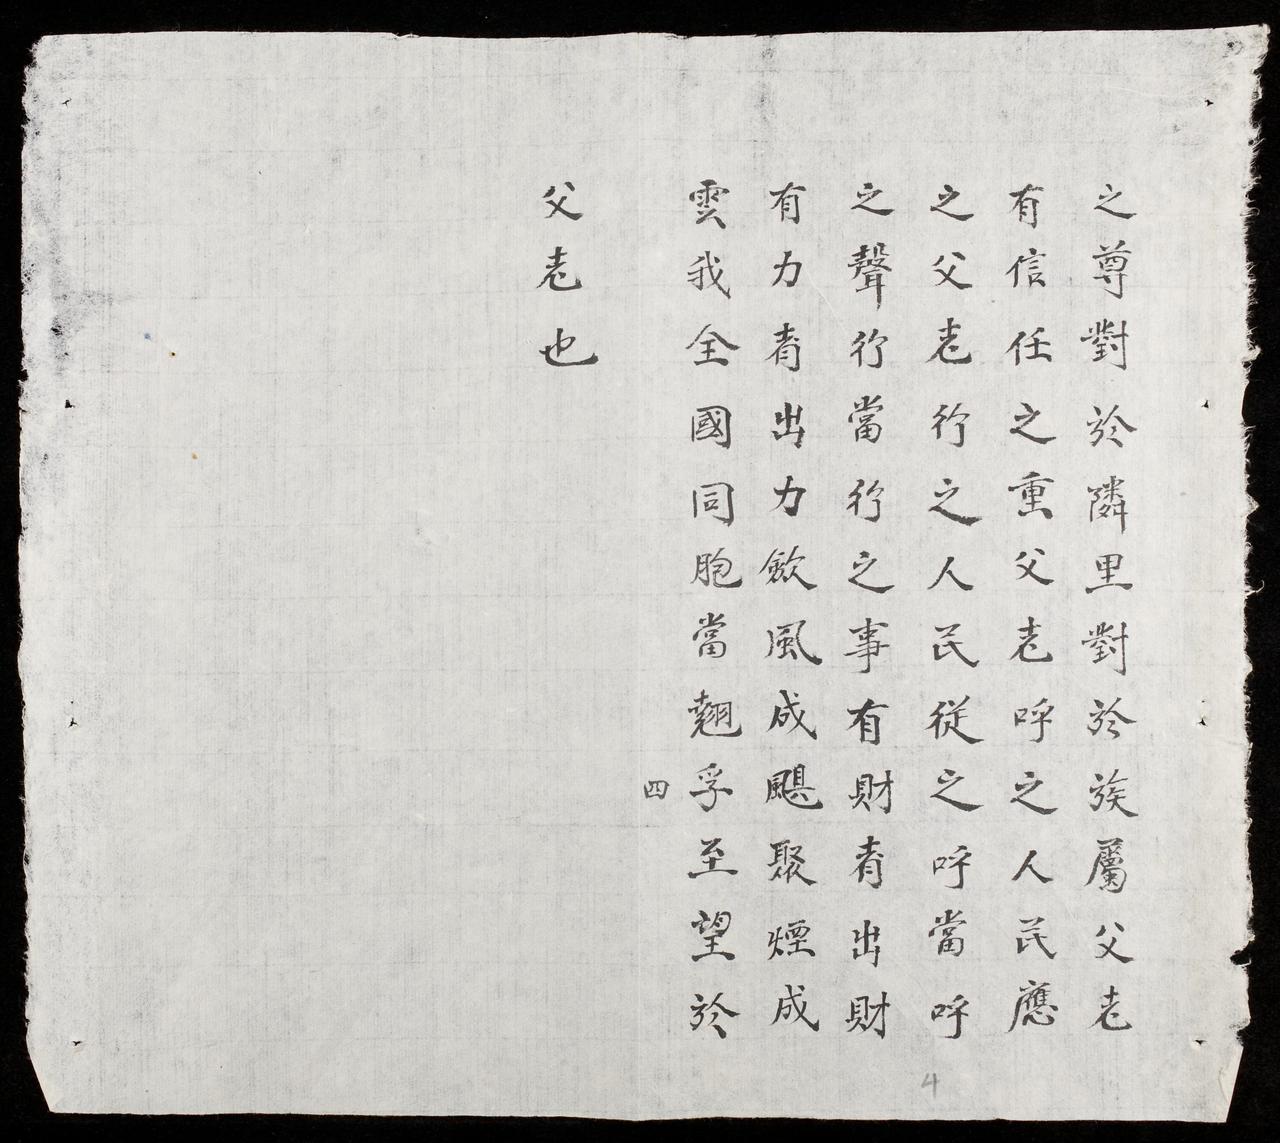 之尊對於隣里對於族屬父老
有信任之重父老呼之人民應
之父老行之人民從之呼當呼
之聲行當行之事有財者出財
有力者出力歛風成颶聚煙成
雲我全國同胞當翹孚至望於
四
父老也
4